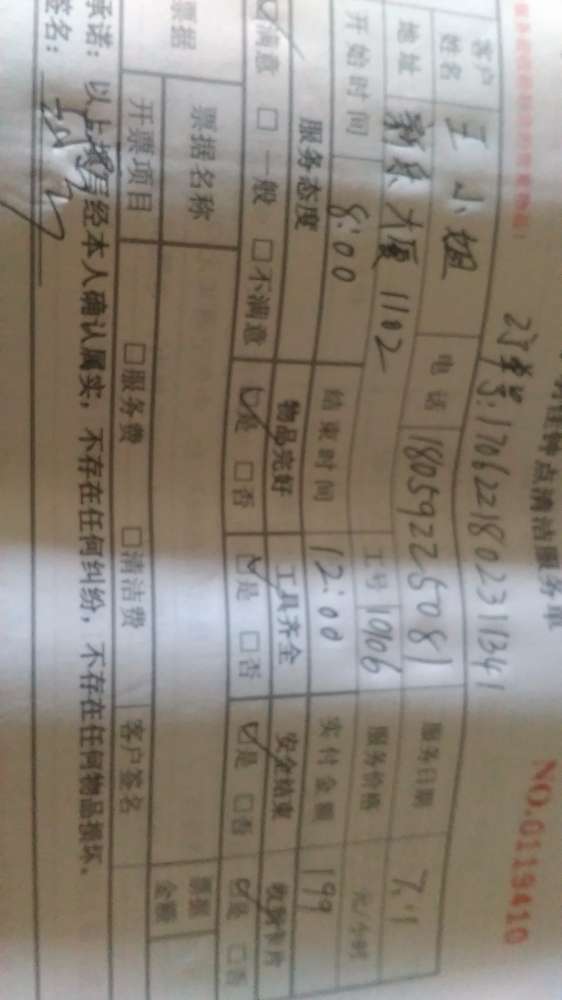 钟点清洁服务单 NO.0119410
订单号:1706221802311341
客户姓名 王小姐 电话 18059225081 服务日期 7.1
地址 新乐大厦1102 工号 10106 服务价格 元/小时
开始时间 8:00 结束时间 12:00 实付金额 199
服务态度 物品完好 工具齐全 安全结束 收到卡片
☑满意 □一般 □不满意 ☑是 □否 ☑是 □否 ☑是 □否 ☑是 □否
票据 票据名称 票据金额
开票项目 □服务费 □清洁费 客户签名
承诺:以上填写经本人确认属实,不存在任何纠纷,不存在任何物品损坏、
签名: